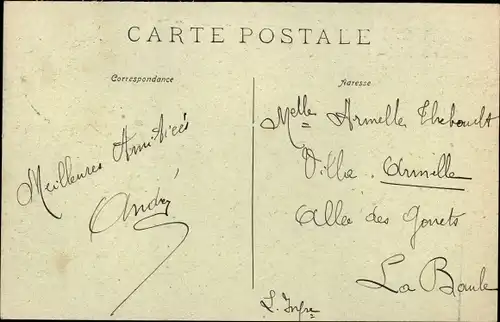 CARTE POSTALE
Correspondance
Adresse
Meilleures Amitiées
André
Melle Armelle Thebault
Villa Armelle
Allée des Gonets
La Baule
L. Infre